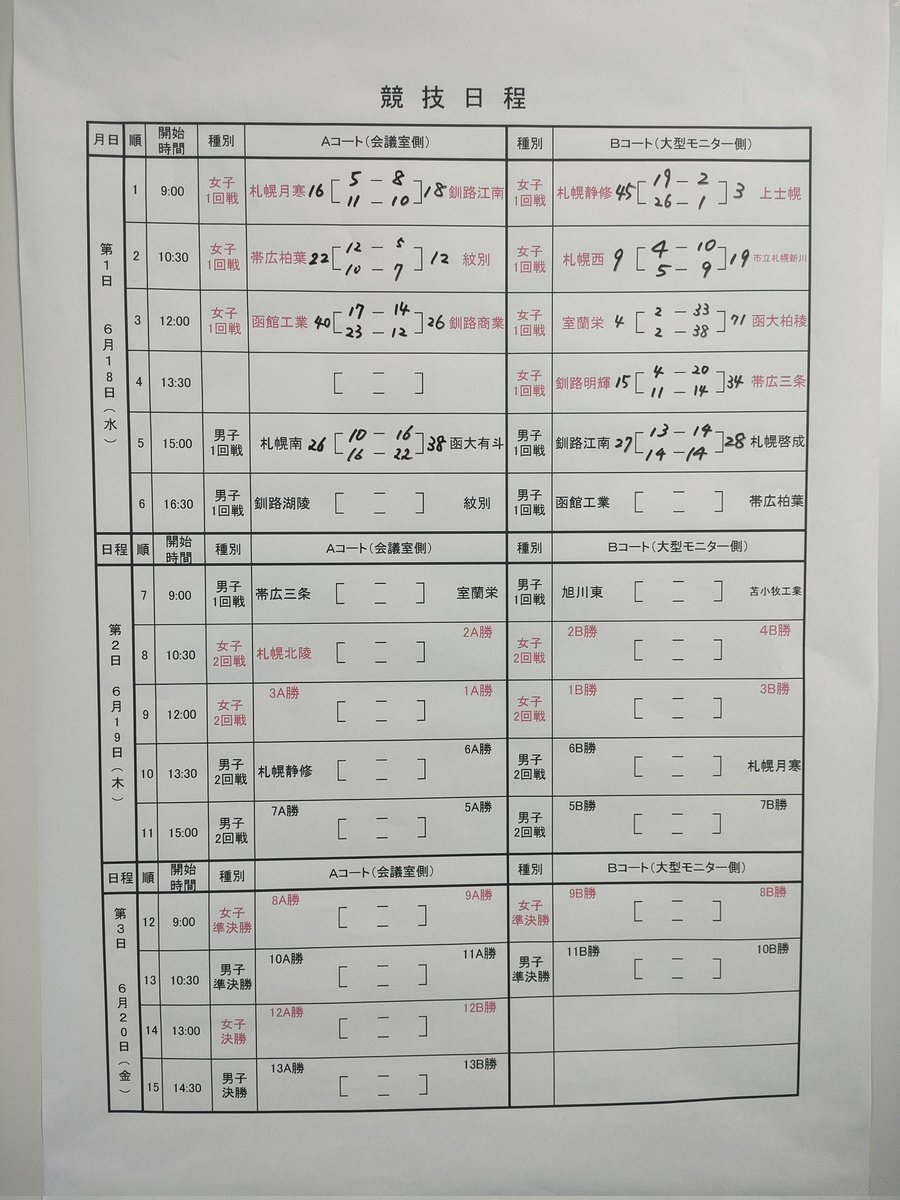 競技日程
月日 順 開始時間 種別 Aコート(会議室側) 種別 Bコート(大型モニター側)
第1日 6月18日(水)
1 9:00 女子1回戦 札幌月寒 16 [5 - 8 18 釧路江南 女子1回戦 札幌静修 45 [19 - 2 3 上士幌
11 - 10] 26 - 1]
2 10:30 女子1回戦 帯広柏葉 22 [12 - 5 12 紋別 女子1回戦 札幌西 9 [4 - 10 19 市立札幌新川
10 - 7] 5 - 9]
3 12:00 女子1回戦 函館工業 40 [17 - 14 26 釧路商業 女子1回戦 室蘭栄 4 [2 - 33 71 函大柏稜
23 - 12] 2 - 38]
4 13:30 [ - - ] 女子1回戦 釧路明輝 15 [4 - 20 34 帯広三条
11 - 14]
5 15:00 男子1回戦 札幌南 26 [10 - 16 38 函大有斗 男子1回戦 釧路江南 27 [13 - 14 28 札幌啓成
16 - 22] 14 - 14]
6 16:30 男子1回戦 釧路湖陵 [ - - ] 紋別 男子1回戦 函館工業 [ - - ] 帯広柏葉
日程 順 開始時間 種別 Aコート(会議室側) 種別 Bコート(大型モニター側)
第2日 6月19日(木)
7 9:00 男子1回戦 帯広三条 [ - - ] 室蘭栄 男子1回戦 旭川東 [ - - ] 苫小牧工業
8 10:30 女子2回戦 札幌北陵 [ - - ] 2A勝 女子2回戦 2B勝 [ - - ] 4B勝
9 12:00 女子2回戦 3A勝 [ - - ] 1A勝 女子2回戦 1B勝 [ - - ] 3B勝
10 13:30 男子2回戦 札幌静修 [ - - ] 6A勝 男子2回戦 6B勝 [ - - ] 札幌月寒
11 15:00 男子2回戦 7A勝 [ - - ] 5A勝 男子2回戦 5B勝 [ - - ] 7B勝
日程 順 開始時間 種別 Aコート(会議室側) 種別 Bコート(大型モニター側)
第3日 6月20日(金)
12 9:00 女子準決勝 8A勝 [ - - ] 9A勝 女子準決勝 9B勝 [ - - ] 8B勝
13 10:30 男子準決勝 10A勝 [ - - ] 11A勝 男子準決勝 11B勝 [ - - ] 10B勝
14 13:00 女子決勝 12A勝 [ - - ] 12B勝
15 14:30 男子決勝 13A勝 [ - - ] 13B勝